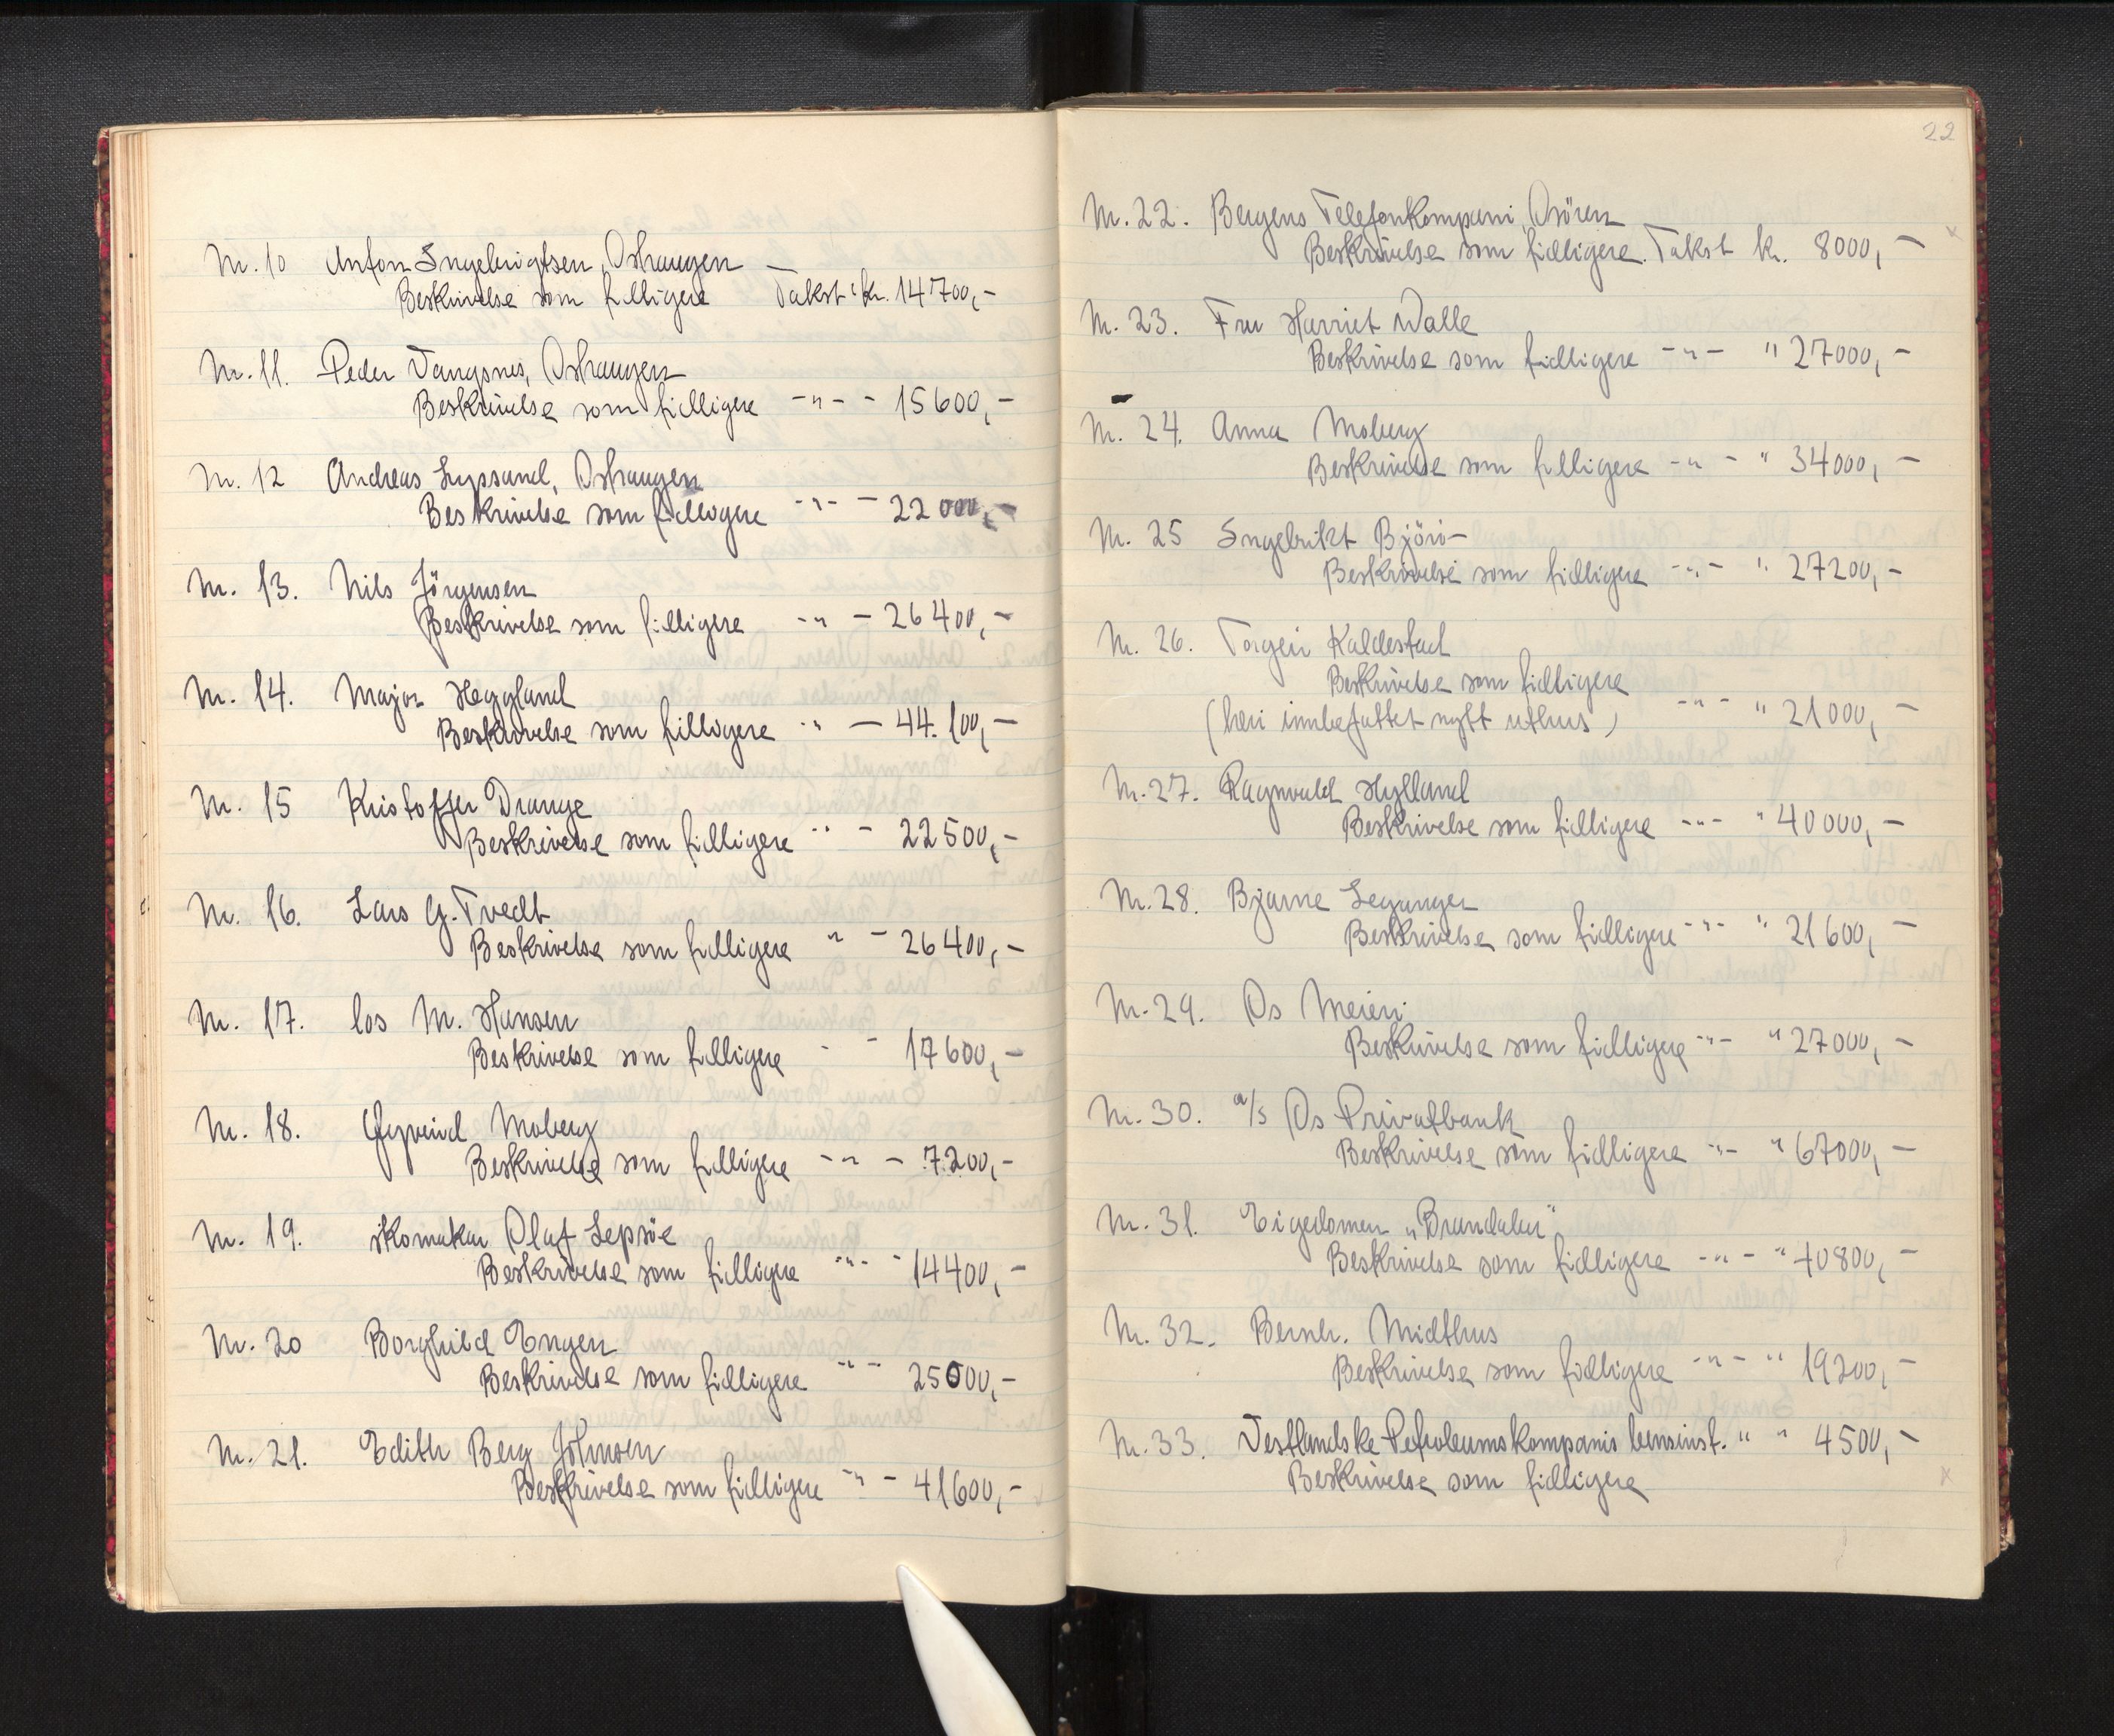 Nr. 10 Anton Engebrigtsen, Oshaugen
Beskrivelse som tidligere Takst kr. 14700,-
Nr. 11. Peder Vangsnes, Oshaugen
Beskrivelse som tidligere -"- - 15600,-
Nr. 12 Andreas Lyssand, Oshaugen
Beskrivelse som tidligere -"- - 22000,-
Nr. 13. Nils Jörgensen
Beskrivelse som tidligere -"- - 26400,-
Nr. 14. Major Heggland
Beskrivelse som tidligere " - 44.100,-
Nr. 15 Kristoffer Drange
Beskrivelse som tidligere " - 22500,-
Nr. 16. Lars G. Tvedt
Beskrivelse som tidligere " - 26400,-
Nr. 17. los M. Hansen
Beskrivelse som tidligere - - 17600,-
Nr. 18. Øyvind Moberg
Beskrivelse som tidligere -"- - 7200,-
Nr. 19. Skomakar Olaf Lepsöe
Beskrivelse som tidligere -"- - 14400,-
Nr. 20 Borghild Engen
Beskrivelse som tidligere -"- 25000,-
Nr. 21. Edith Berg Johnsen
Beskrivelse som tidligere -"- - 41600,-
22
Nr. 22. Bergens Telefonkompani, Osören
Beskrivelse som tidligere. Takst kr. 8000,-
Nr. 23. Fru Harriet Walle
Beskrivelse som tidligere -"- " 27000,-
Nr. 24. Anna Moberg
Beskrivelse som tidligere -"- " 34000,-
Nr. 25 Engebrikt Björö-
Beskrivelse som tidligere -"- " 27200,-
Nr. 26. Torgeir Kaldestad
Beskrivelse som tidligere
(heri innbefattet nytt uthus) -"- " 21000,-
Nr. 27. Ragnvald Hylland
Beskrivelse som tidligere -"- " 40000,-
Nr. 28. Bjarne Leganger
Beskrivelse som tidligere -"- " 21600,-
Nr. 29. Os Meieri
Beskrivelse som tidligere -"- " 27000,-
Nr. 30. a/s Os Privatbank
Beskrivelse som tidligere -"- " 67000,-
Nr. 31. Eigedomen "Brundalen"
Beskrivelse som tidligere -"- " 40800,-
Nr. 32. Bernh. Midthus
Beskrivelse som tidligere -"- " 19200,-
Nr. 33. Vestlandske Petroleumskompanis bensinst. " " 4500,-
Beskrivelse som tidligere